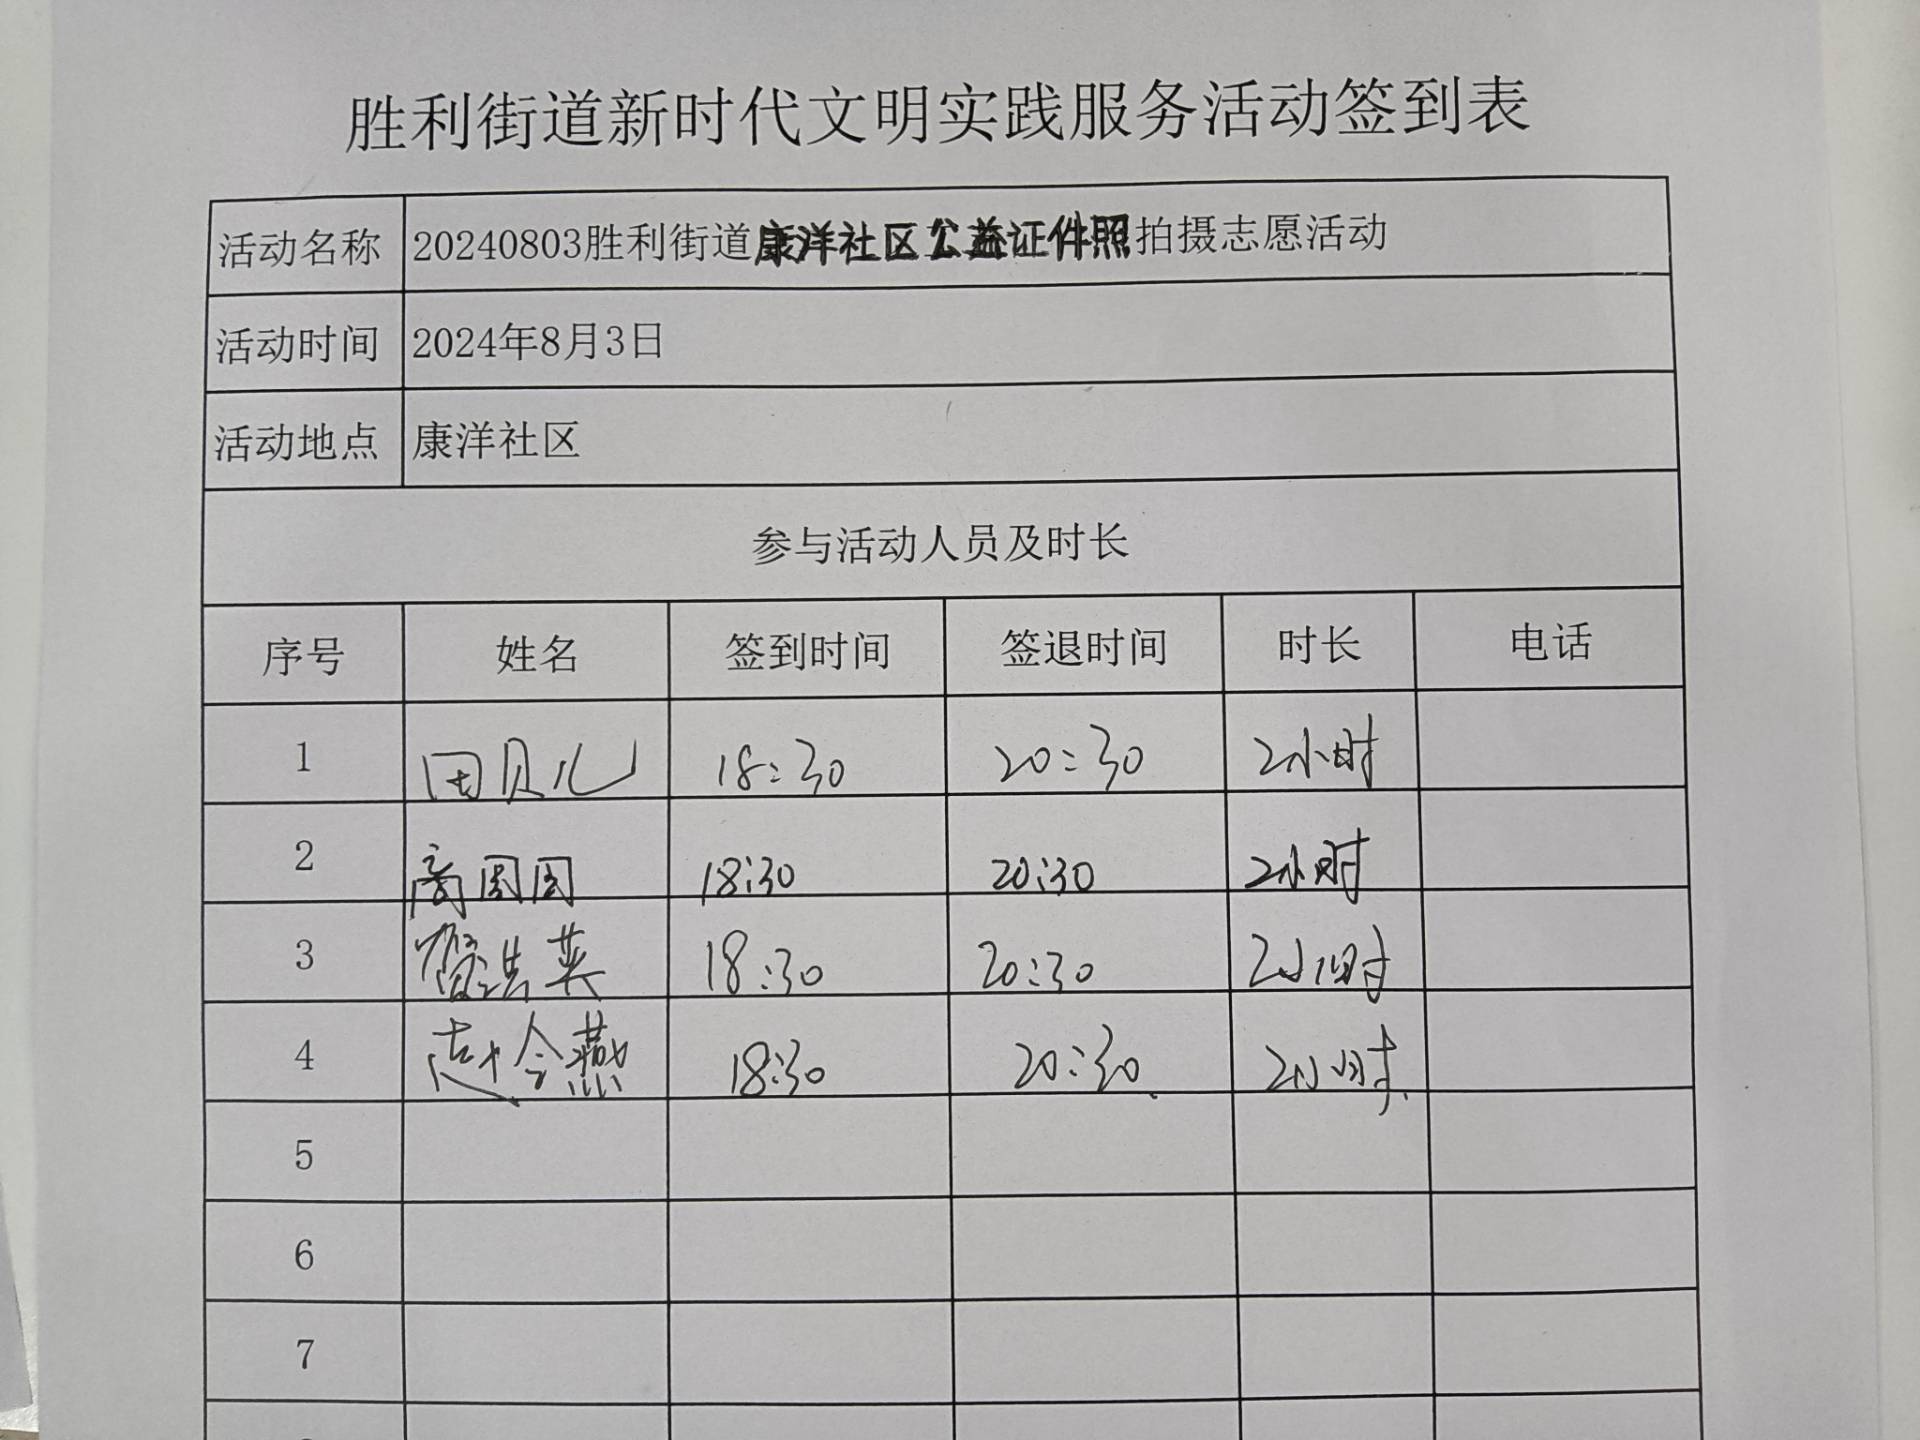 胜利街道新时代文明实践服务活动签到表
活动名称 20240803胜利街道康洋社区公益证件照拍摄志愿活动
活动时间 2024年8月3日
活动地点 康洋社区
参与活动人员及时长
序号 姓名 签到时间 签退时间 时长 电话
1 田贝儿 18:30 20:30 2小时
2 商圆圆 18:30 20:30 2小时
3 18:30 20:30 2小时
4 赵令燕 18:30 20:30 2小时
5
6
7